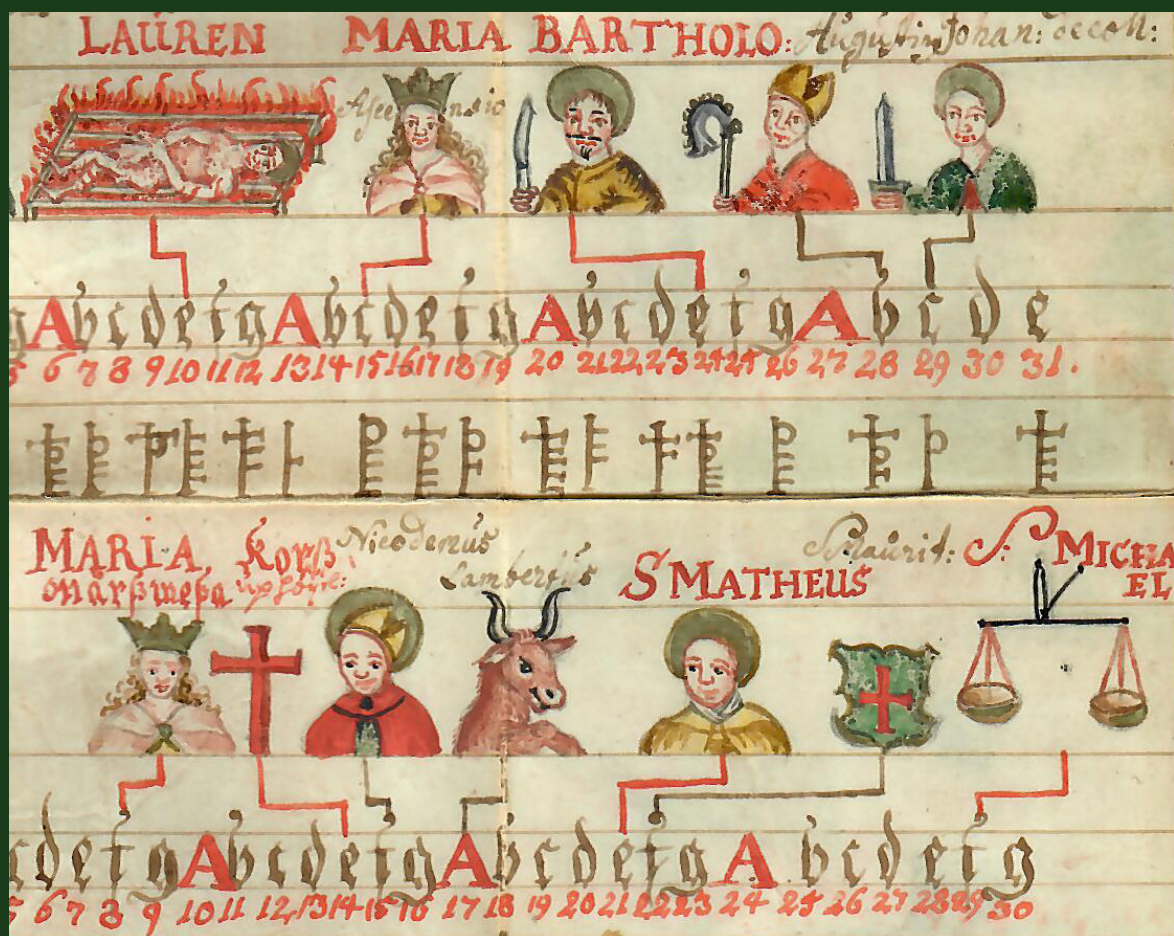 LAUREN MARIA BARTHOLO: Augustin Johan: decoll:
Ascensio
g A b c d e f g A b c d e f g A b c d e f g A b c d e
5 6 7 8 9 10 11 12 13 14 15 16 17 18 19 20 21 22 23 24 25 26 27 28 29 30 31.
MARIA. Korß Nicodemus Lambertus S MATHEUS Maurit: S: MICHA
EL
c d e f g A b c d e f g A b c d e f g A b c d e f g
5 6 7 8 9 10 11 12 13 14 15 16 17 18 19 20 21 22 23 24 25 26 27 28 29 30